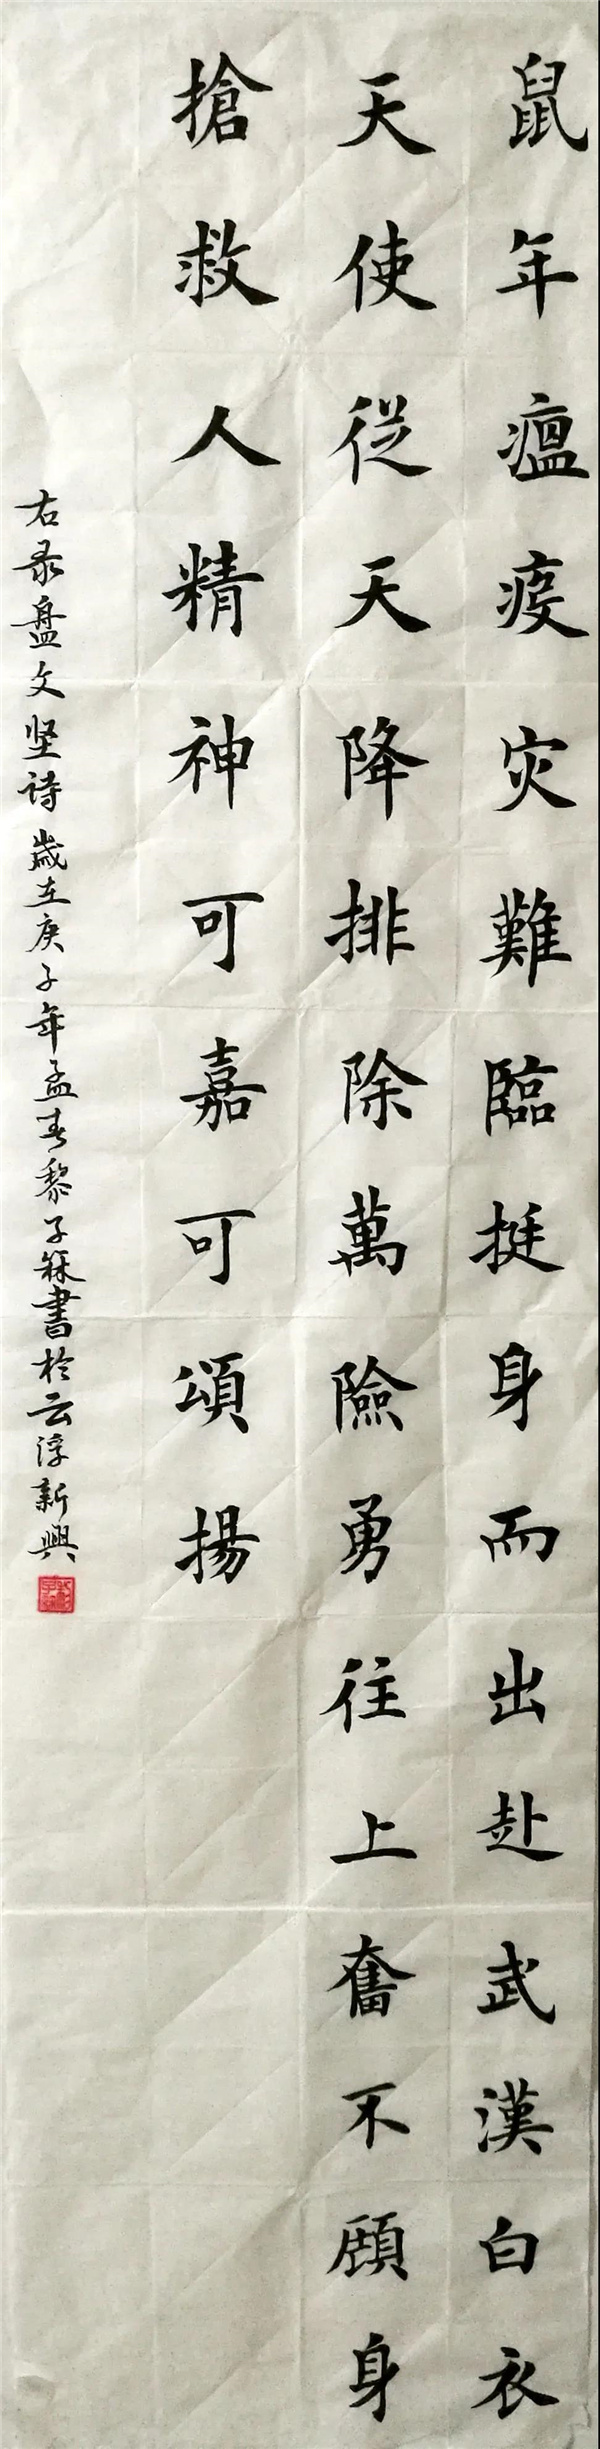 鼠年瘟疫灾難臨挺身而出赴武漢白衣
天使從天降排除萬險勇往上奮不顧身
搶救人精神可嘉可頌揚
右录盘文坚诗歲在庚子年孟春黎子稼書於云浮新興